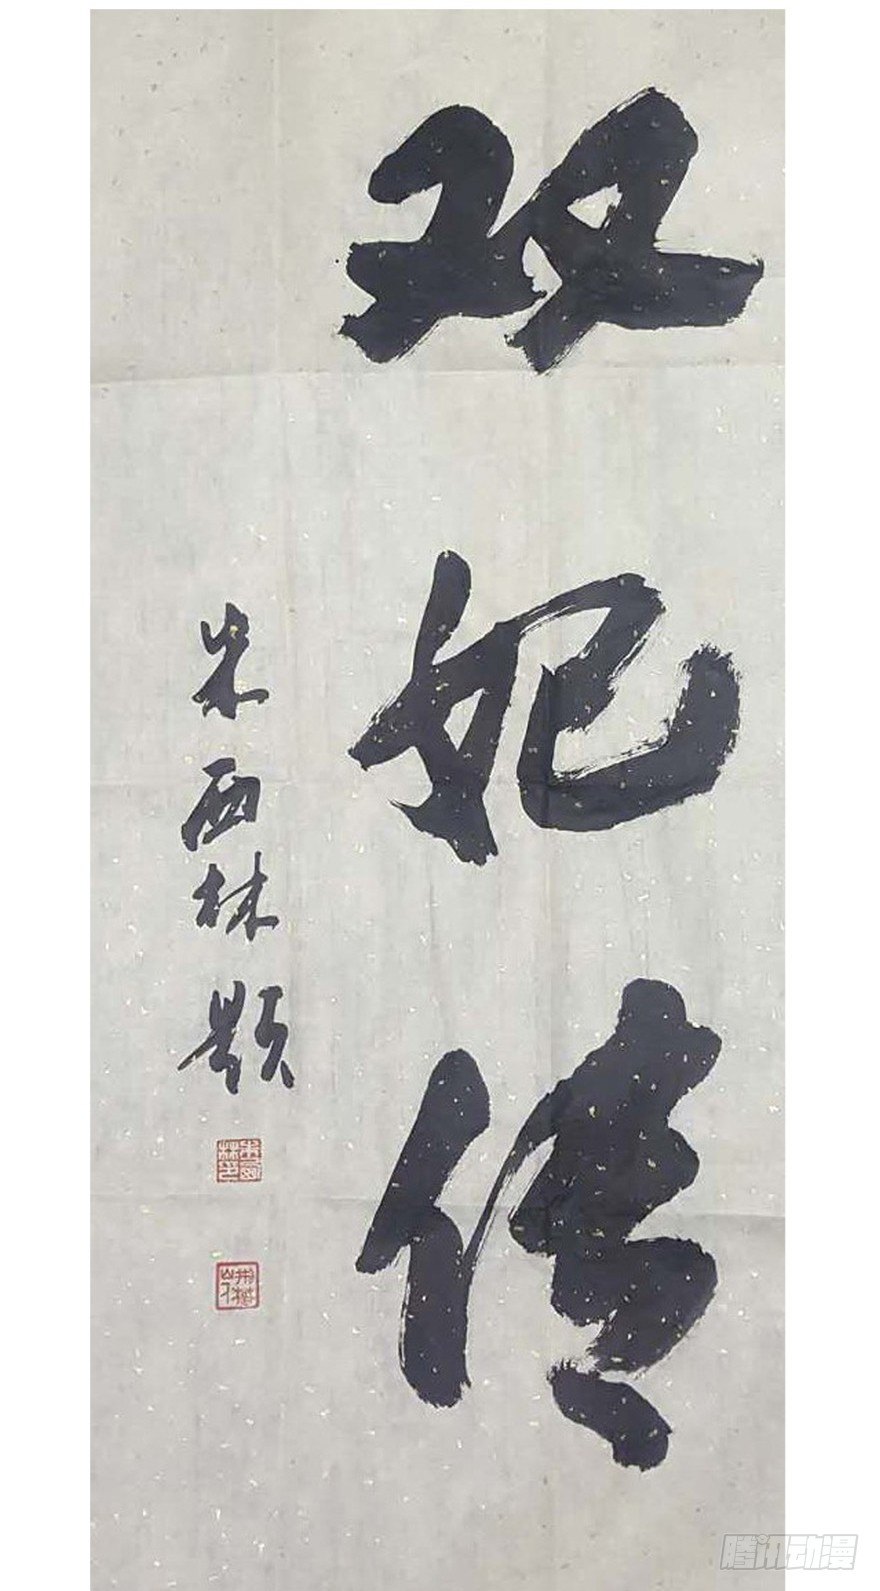 双妃传
朱西林题
腾讯动漫